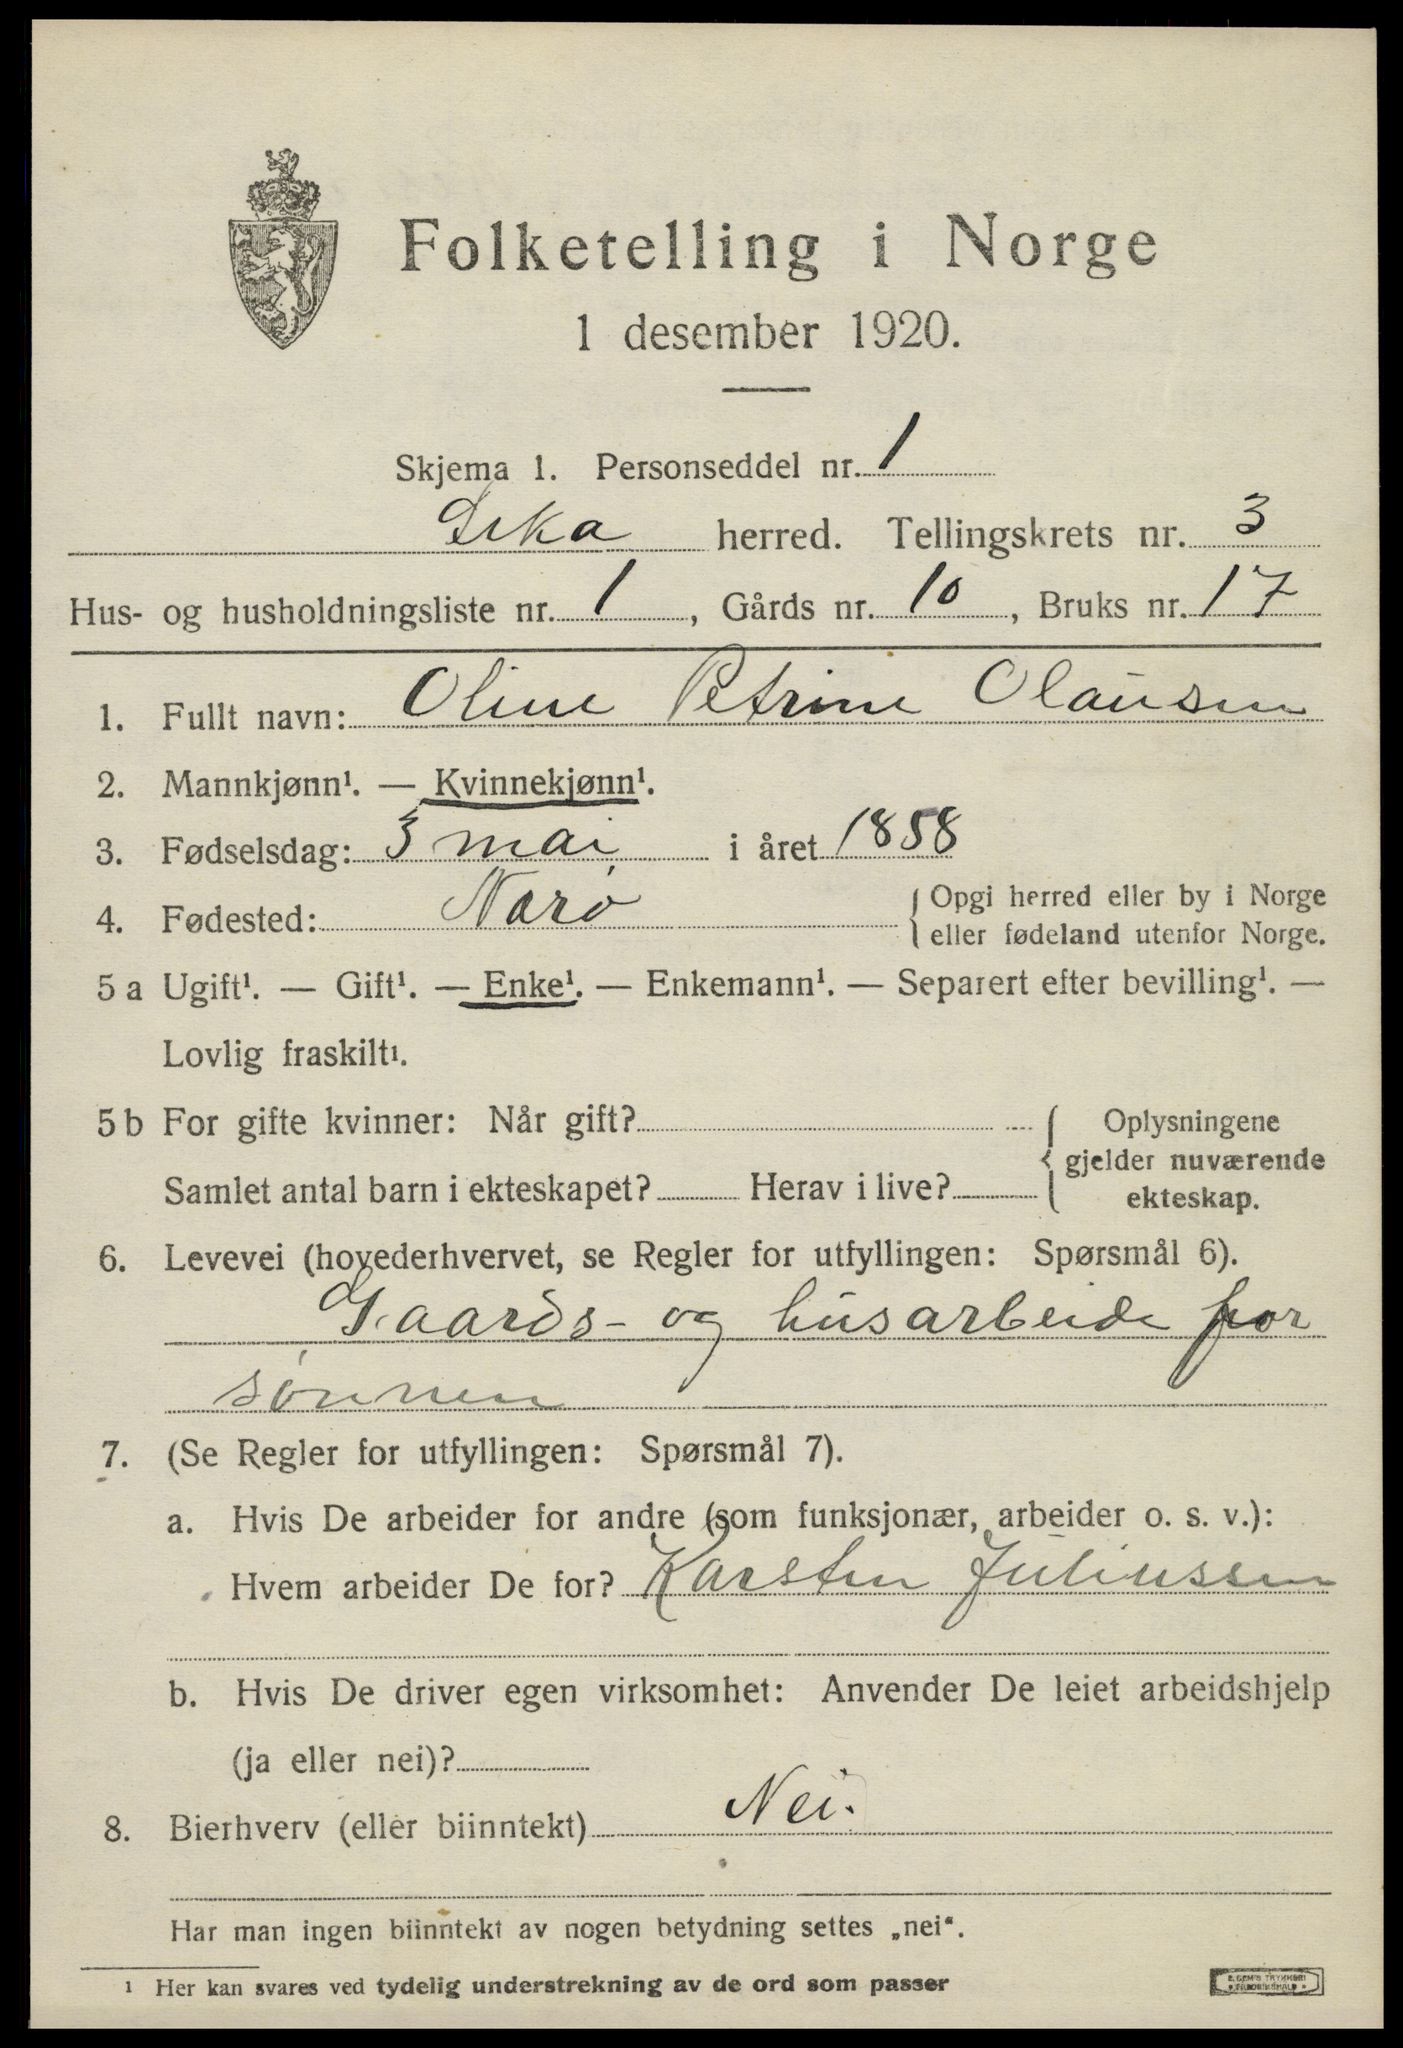 Folketelling i Norge
1 desember 1920.
Skjema 1. Personseddel nr. 1
Leka herred. Tellingskrets nr. 3
Hus- og husholdningsliste nr. 1, Gårds nr. 10, Bruks nr. 17
1. Fullt navn: Oline Petrine Olausen
2. Mannkjønn¹. — Kvinnekjønn¹.
3. Fødselsdag: 3 mai i året 1858
4. Fødested: Nærø { Opgi herred eller by i Norge
eller fødeland utenfor Norge.
5 a Ugift¹. — Gift¹. — Enke¹. — Enkemann¹. — Separert efter bevilling¹. —
Lovlig fraskilt¹.
5 b For gifte kvinner: Når gift? { Oplysningene
gjelder nuværende
Samlet antal barn i ekteskapet? Herav i live? ekteskap.
6. Levevei (hovederhvervet, se Regler for utfyllingen: Spørsmål 6).
Gaards- og husarbeide for
sønnen
7. (Se Regler for utfyllingen: Spørsmål 7).
a. Hvis De arbeider for andre (som funksjonær, arbeider o. s. v.):
Hvem arbeider De for? Karsten Juliussen
b. Hvis De driver egen virksomhet: Anvender De leiet arbeidshjelp
(ja eller nei)?
8. Bierhverv (eller biinntekt) Nei.
Har man ingen biinntekt av nogen betydning settes „nei“.
¹ Her kan svares ved tydelig understrekning av de ord som passer